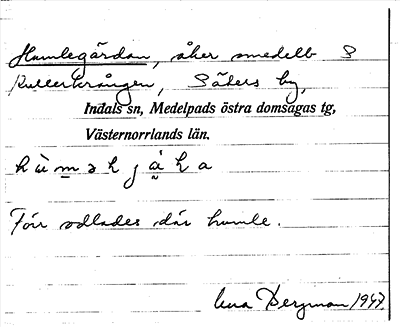 Humlegårdan, åker omedelb S
Kullerkrången, Säters by,
Indals sn, Medelpads östra domsagas tg,
Västernorrlands län.
Förr odlades där humle.
Lena Bergman 1947